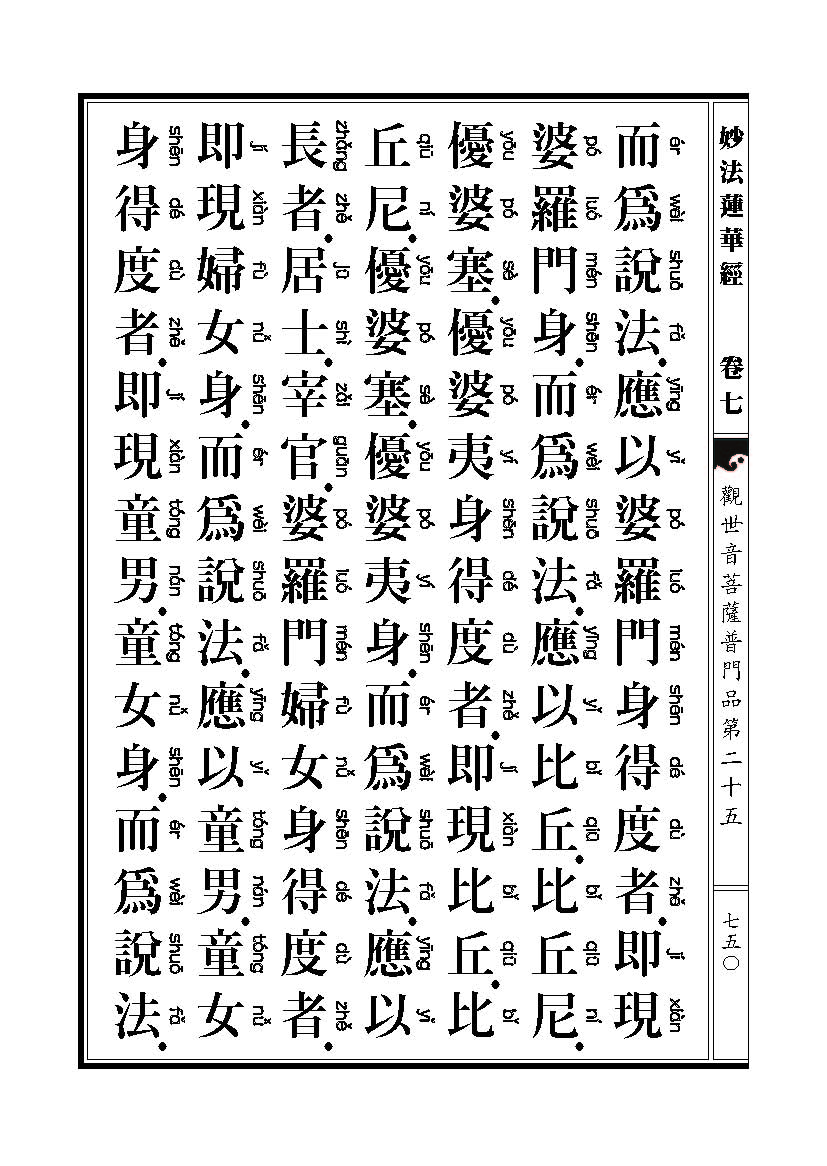 妙法蓮華經 卷七
觀世音菩薩普門品第二十五
七五〇
ér wèi shuō fǎ yīng yǐ pó luó mén shēn dé dù zhě jí xiàn
而爲說法．應以婆羅門身得度者．即現
pó luó mén shēn ér wèi shuō fǎ yīng yǐ bǐ qiū bǐ qiū ní
婆羅門身．而爲說法．應以比丘．比丘尼．
yōu pó sè yōu pó yí shēn dé dù zhě jí xiàn bǐ qiū bǐ
優婆塞．優婆夷身得度者．即現比丘．比
qiū ní yōu pó sè yōu pó yí shēn ér wèi shuō fǎ yīng yǐ
丘尼．優婆塞．優婆夷身．而爲說法．應以
zhǎng zhě jū shì zǎi guān pó luó mén fù nǚ shēn dé dù zhě
長者．居士．宰官．婆羅門婦女身得度者．
jí xiàn fù nǚ shēn ér wèi shuō fǎ yīng yǐ tóng nán tóng nǚ
即現婦女身．而爲說法．應以童男．童女
shēn dé dù zhě jí xiàn tóng nán tóng nǚ shēn ér wèi shuō fǎ
身得度者．即現童男．童女身．而爲說法．